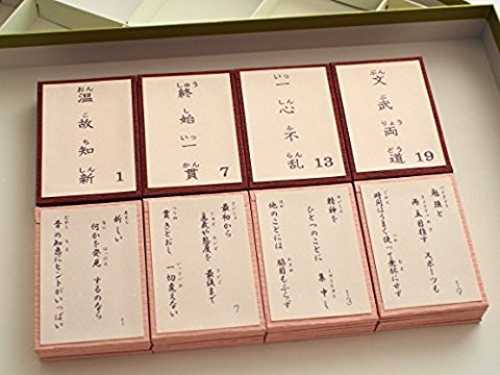 温故知新
おんこちしん
1
終始一貫
しゅうしいっかん
7
一心不乱
いっしんふらん
13
文武両道
ぶんぶりょうどう
19
新しい
何かを発見 するのなら
昔の知恵にヒントがいっぱい
1
最初から
主義や態度を 最後まで
貫きとおし 一切変えない
7
精神を
ひとつのことに 集中し
他のことには 脇目もふらず
13
勉強と
両立目指す スポーツも
時間はうまく使って無駄にせず
19